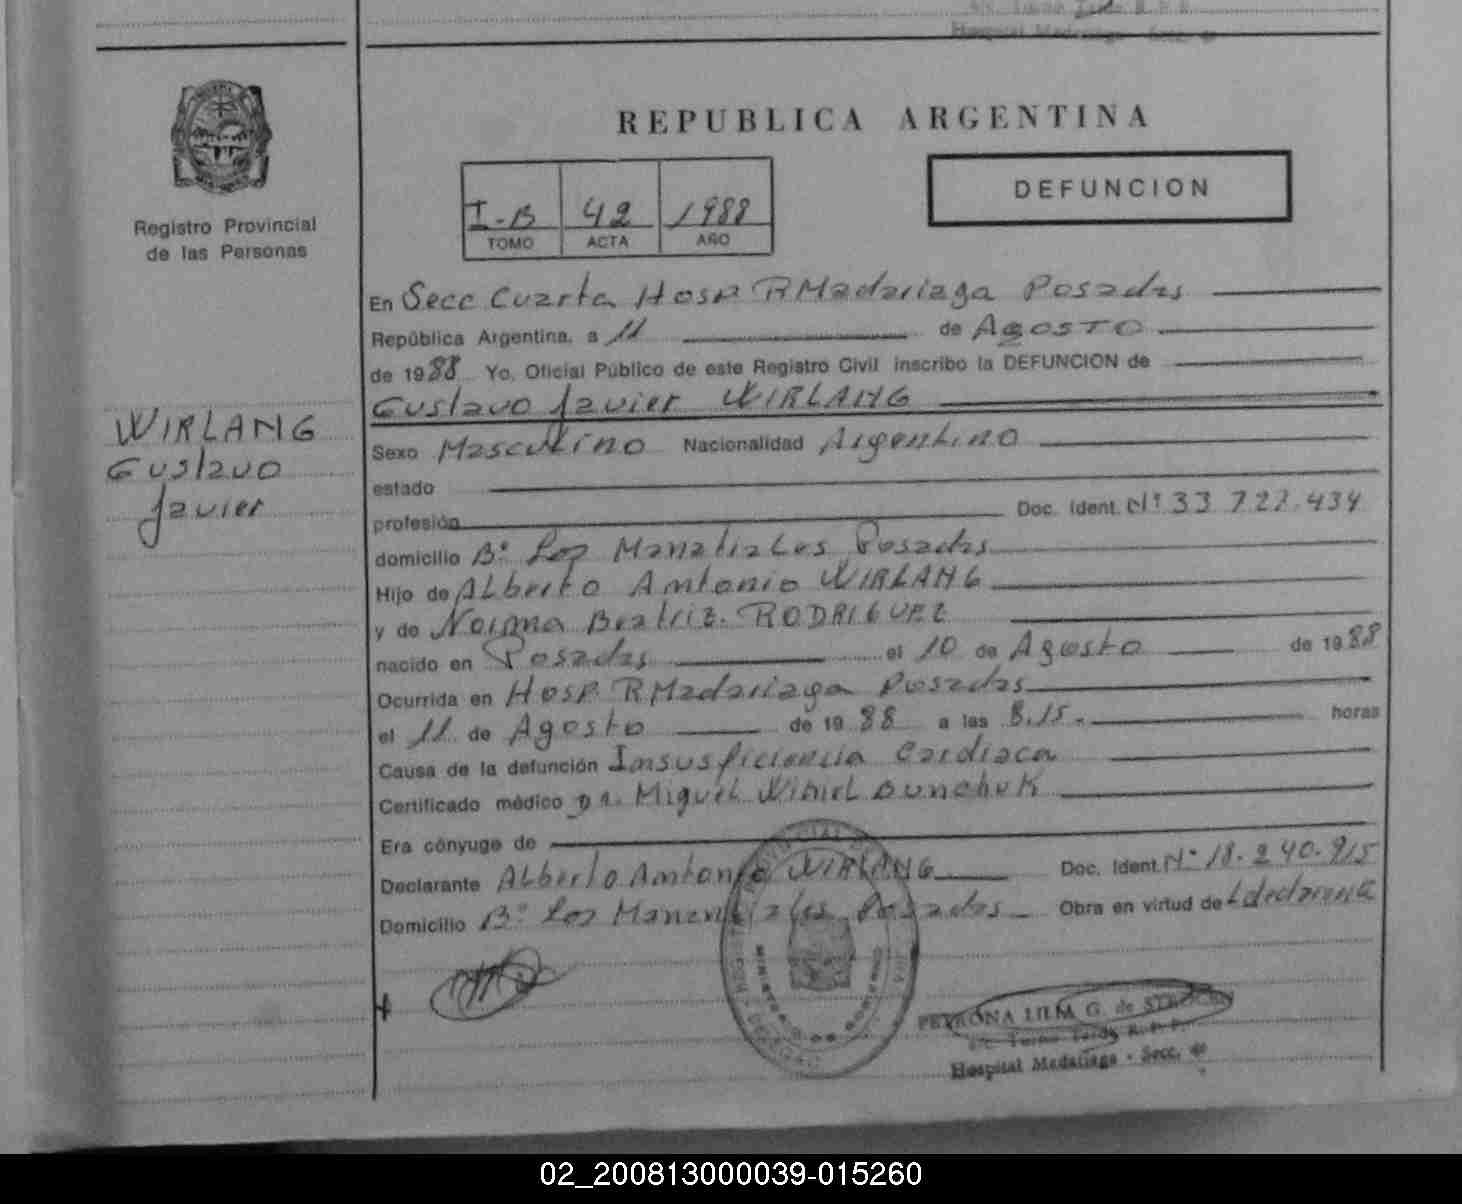 REPUBLICA ARGENTINA
DEFUNCION
I-B 42 1988
TOMO ACTA AÑO
Registro Provincial
de las Personas
WIRLANG
Gustavo
Javier
En Secc Cuarta Hosp. R Madariaga Posadas
República Argentina, a 11 de AgOSTO
de 1988 Yo, Oficial Público de este Registro Civil inscribo la DEFUNCION de
Gustavo Javier WIRLANG
Sexo Masculino Nacionalidad Argentino
estado
profesión Doc. Ident. Nº 33 722.434
domicilio Bº Los Manatiales Posadas
Hijo de Alberto Antonio WIRLANG
y de Norma Beatriz. RODRIGUEZ
nacido en Posadas el 10 de Agosto de 1988
Ocurrida en Hosp. R Madariaga Posadas
el 11 de Agosto de 1988 a las 8.15. horas
Causa de la defunción Insuficiencia Cardiaca
Certificado médico Dr. Miguel
Era cónyuge de
Declarante Alberto Antonio WIRLANG Doc. Ident. Nº 18.240.915
Domicilio Bº Los Manantiales Posadas Obra en virtud de L declarante
MINISTERIO DE GOBIERNO
G. de
Turno Tarde R. P. P.
Hospital Madariaga - Secc. 4º
02_200813000039-015260